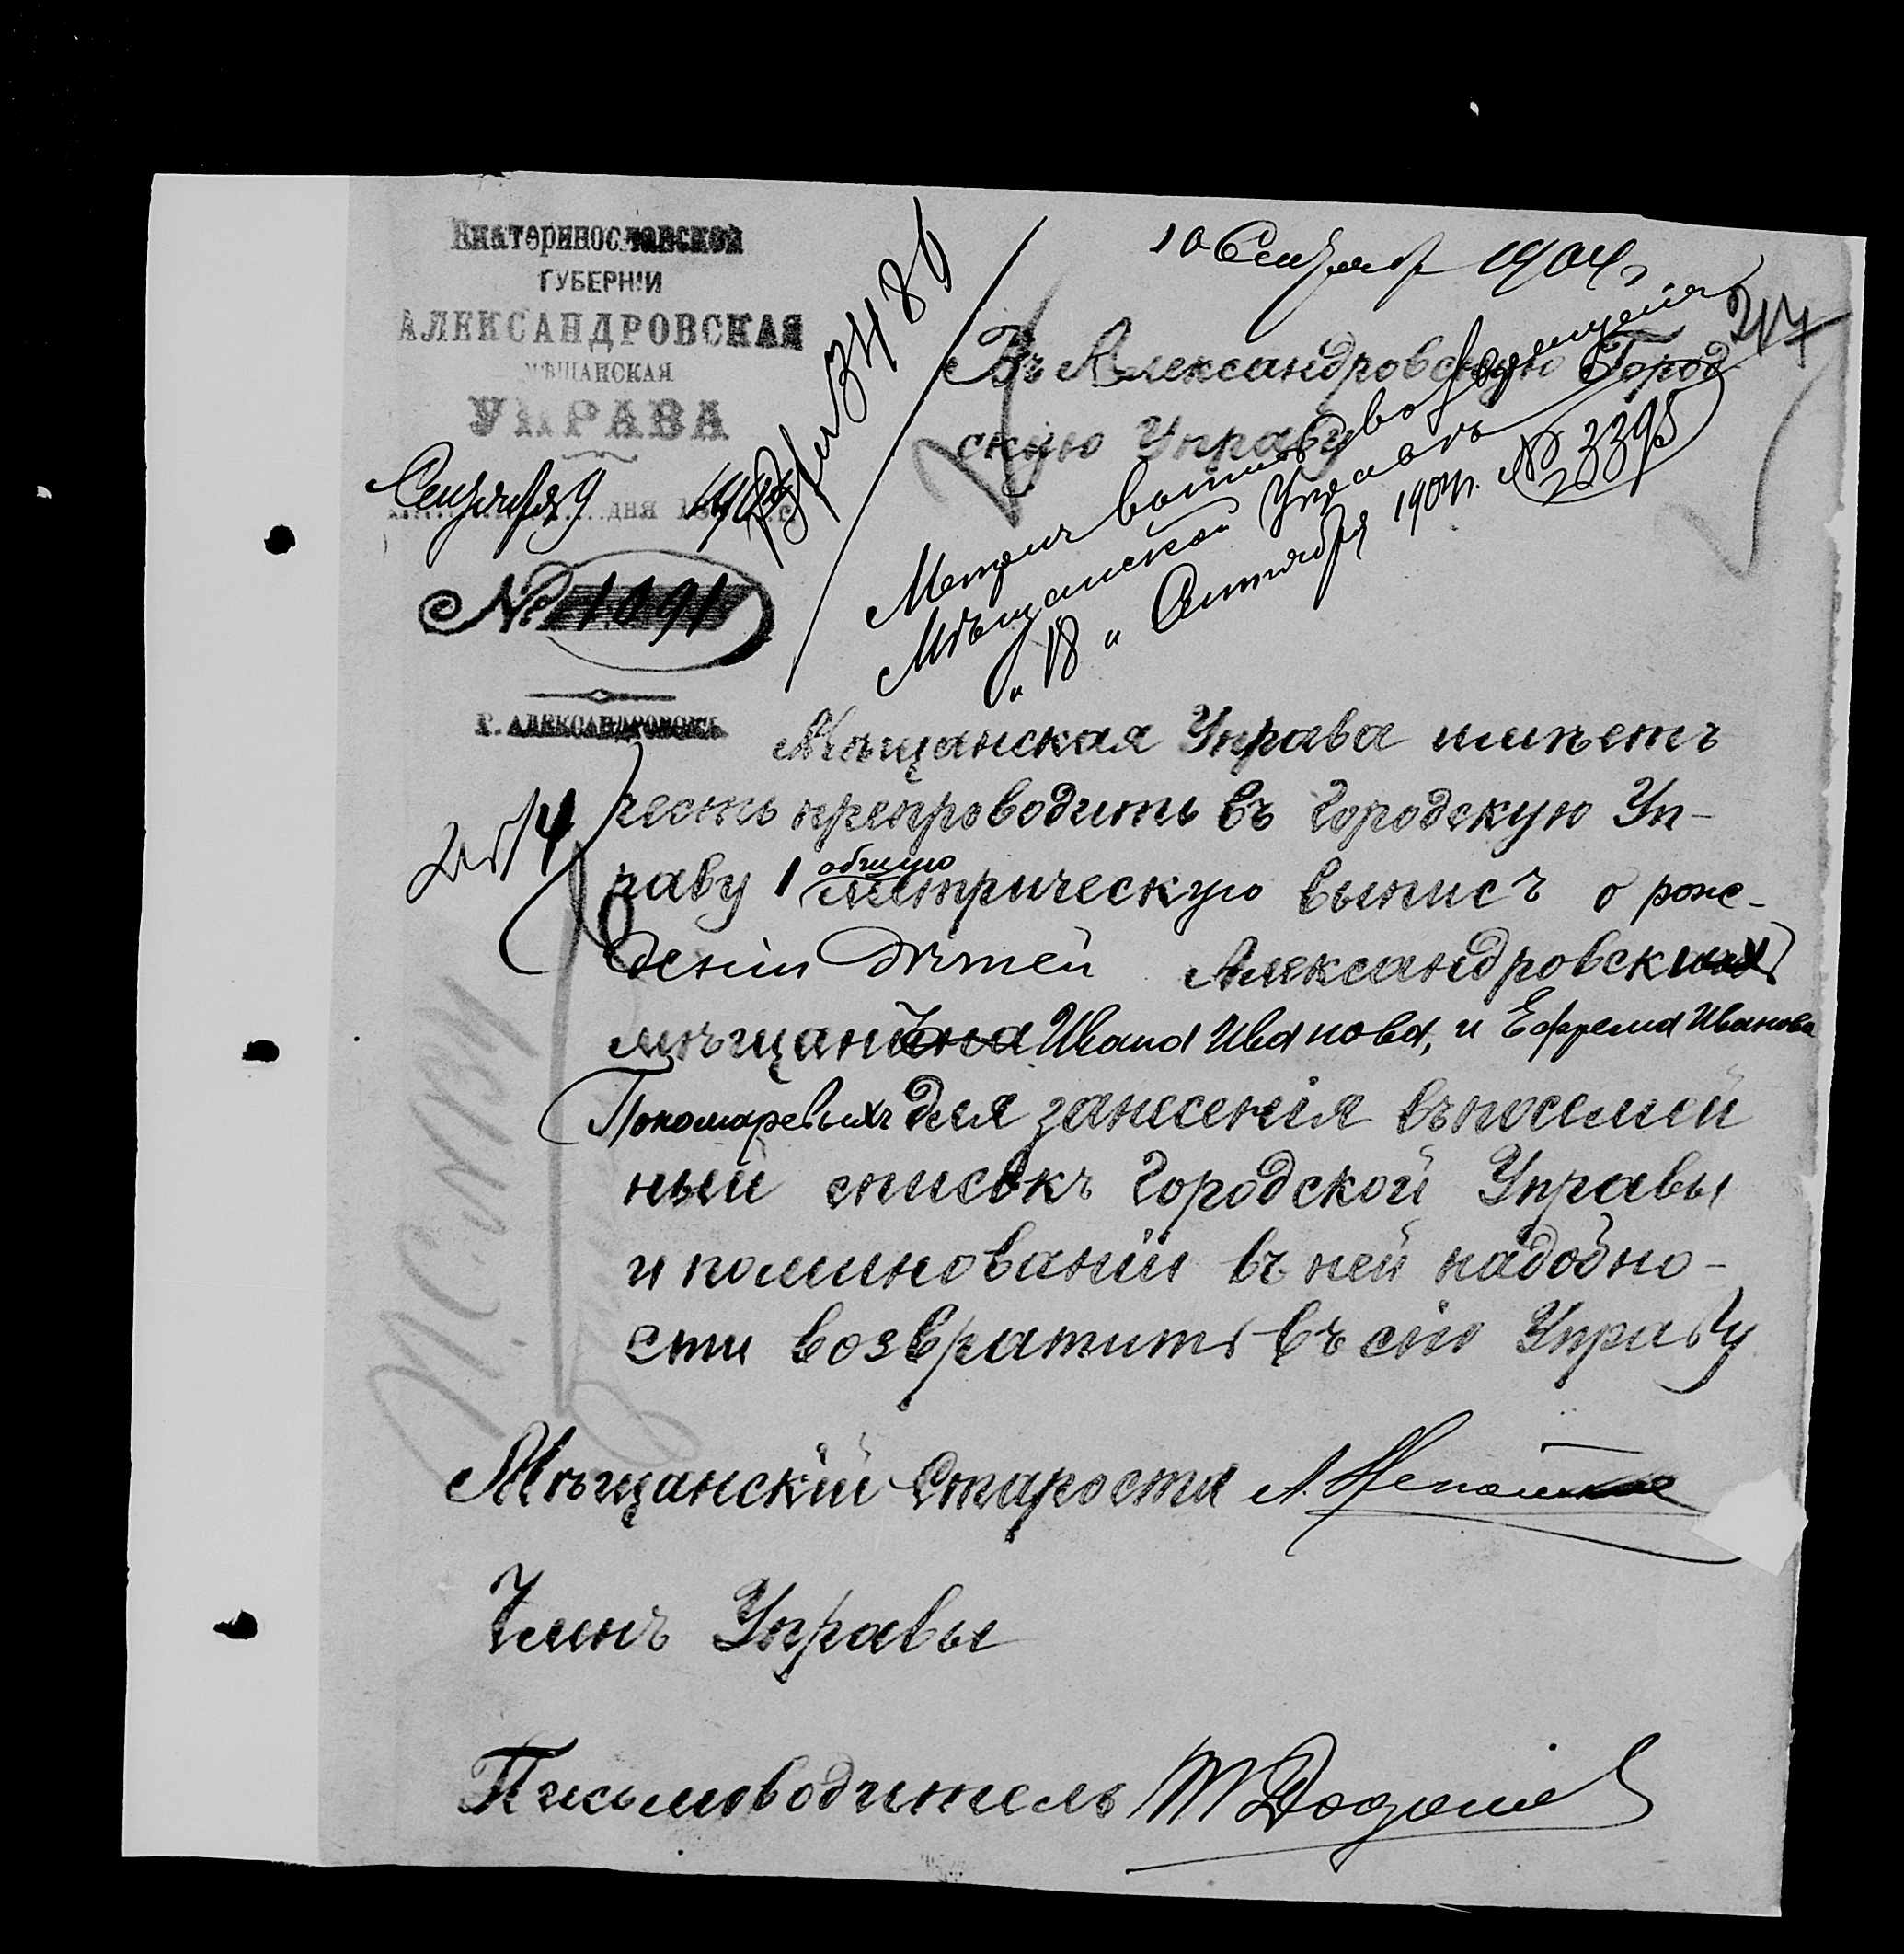 Екатеринославской
ГУБЕРНІИ
АЛЕКСАНДРОВСКАЯ
МѢЩАНСКАЯ
УПРАВА
Сентября 9 дня 1904 г.
№ 1091
Г. АЛЕКСАНДРОВСКЪ
3486
10 Сентября 1904 г
217
Въ Александровскую Город
скую Управу
Метрич возвращена
Мѣщанской Управѣ
„18" Сентября 1904 г. № 3395
Мѣщанская Управа имѣетъ
честь препроводить въ Городскую Уп-
раву 1 общую метрическую выпись о рож-
деніи дѣтей Александровских
мѣщан Ивана Иванова, и Ефрема Иванова
Пономаревыхъ для занесенія въ посемей
ный списокъ Городской Управы
и по минованіи въ ней надобно-
сти возвратить въ сію Управу
Мѣщанскій Староста
Членъ Управы
Письмоводитель